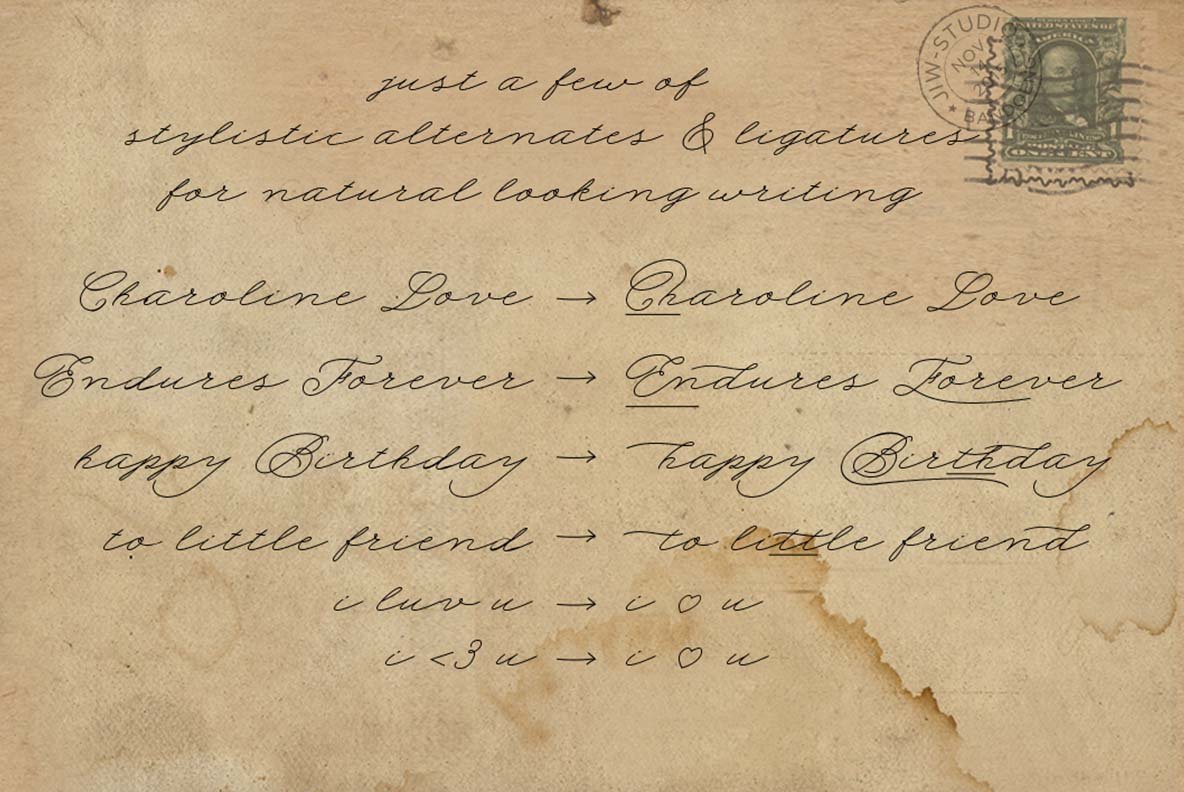 just a few of
stylistic alternates & ligatures
for natural looking writing
Charoline Love → Charoline Love
Endures Forever → Endures Forever
happy Birthday → happy Birthday
to little friend → to little friend
i luv u → i ♡ u
i <3 u → i ♡ u
JIW-STUDIO
NOV
UNITED STATES OF
AMERICA
ONE CENT